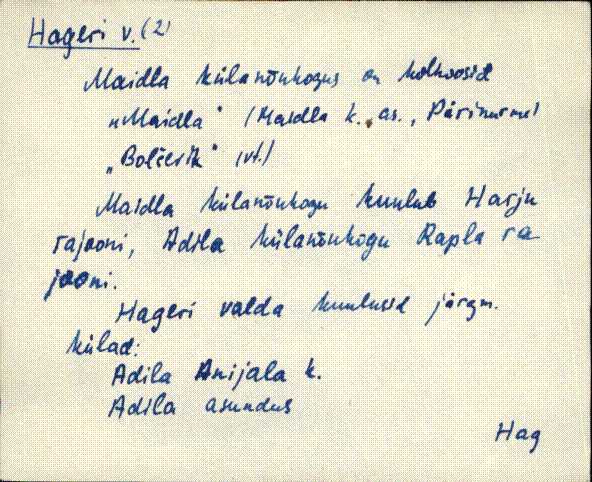 Hageri v. (2)
Maidla külanõukogus on kolhoosid
"Maidla" (Maidla k. as., Pärinurme)
"Bolševik" (vt.)
Maidla külanõukogu kuulub Harju
rajooni, Adila külanõukogu Rapla ra
jooni.
Hageri valda kuulusid järgm.
külad:
Adila Anijala k.
Adila asundus
Hag